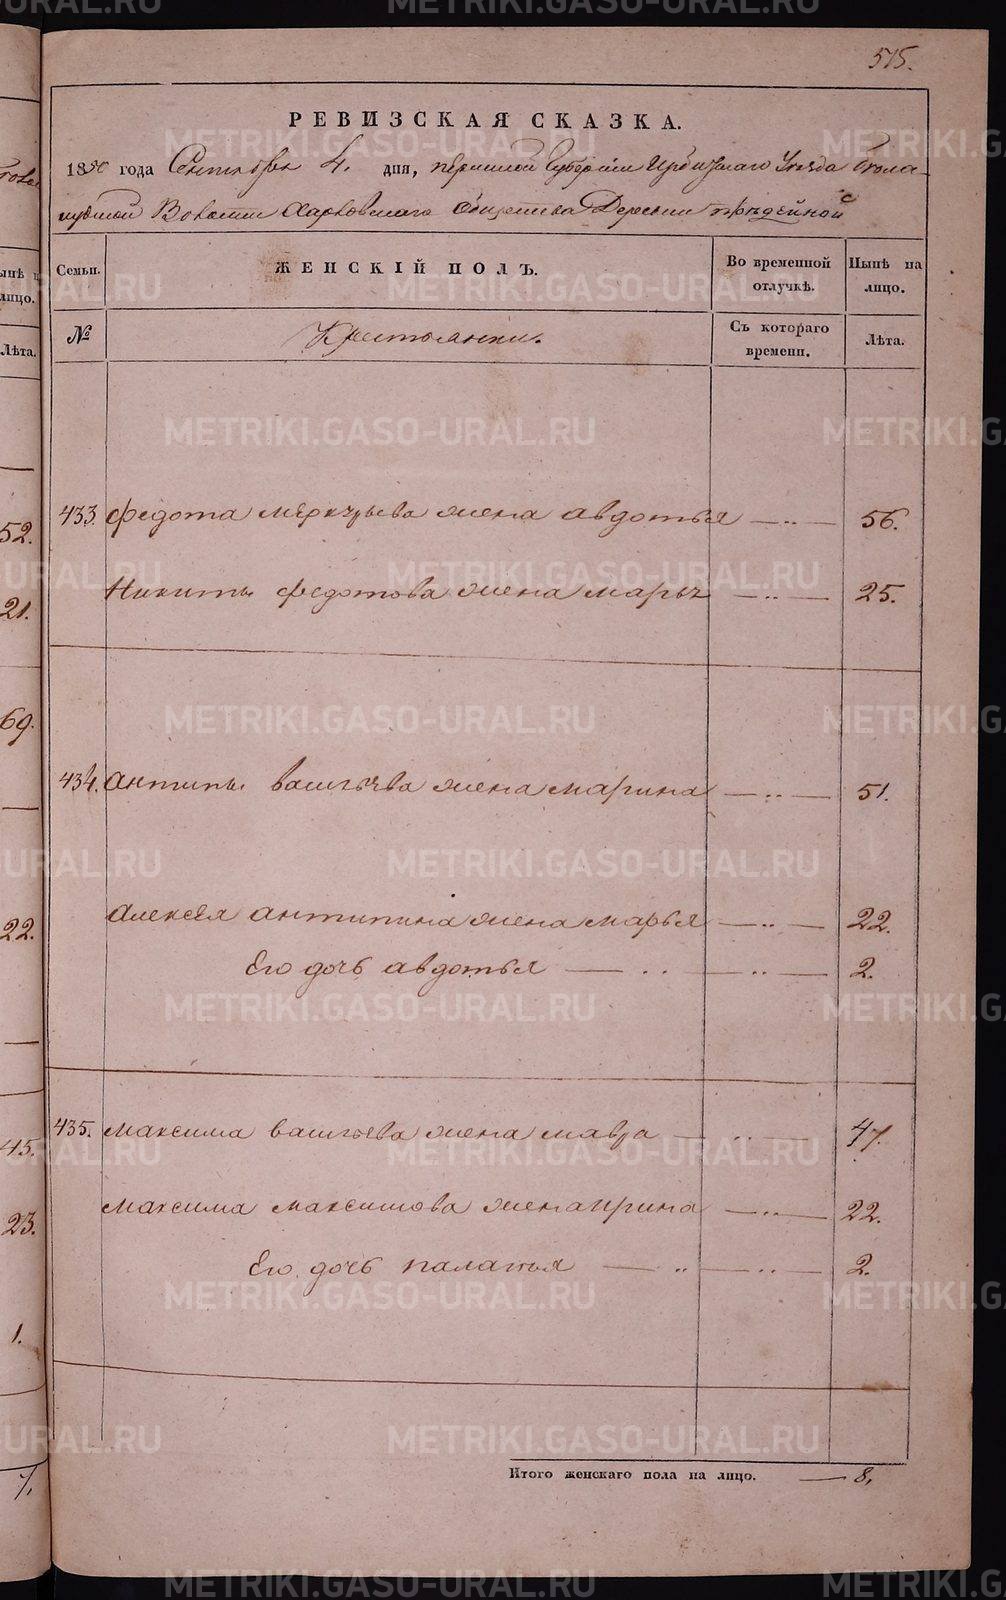 515.
РЕВИЗСКАЯ СКАЗКА.
1850 года Сентября 4. дня, Пермской Губернии Ирбитскаго Уезда
Волости Харловскаго Общества Деревни
Семьи. ЖЕНСКІЙ ПОЛЪ. Во временной отлучкѣ. Нынѣ на лицо.
№ Крестьянки. Съ котораго времени. Лѣта.
433. Федота Меркурьева жена Авдотья — „ — 56.
Никиты Федотова жена Марья — „ — 25.
434. Антипы Васильева жена Марина — „ — 51.
Алексея Антипина жена Марья — „ — 22.
Его дочь Авдотья — „ — „ — 2.
435. Максима Васильева жена Мавра — „ — 47.
Максима Максимова жена Ирина — „ — 22.
Его дочь Палатья — „ — „ — 2.
Итого женскаго пола на лицо. — 8.
ынѣ н
лицо.
Лѣта.
52.
21.
69.
22.
45.
23.
1.
7.
METRIKI.GASO-URAL.RU